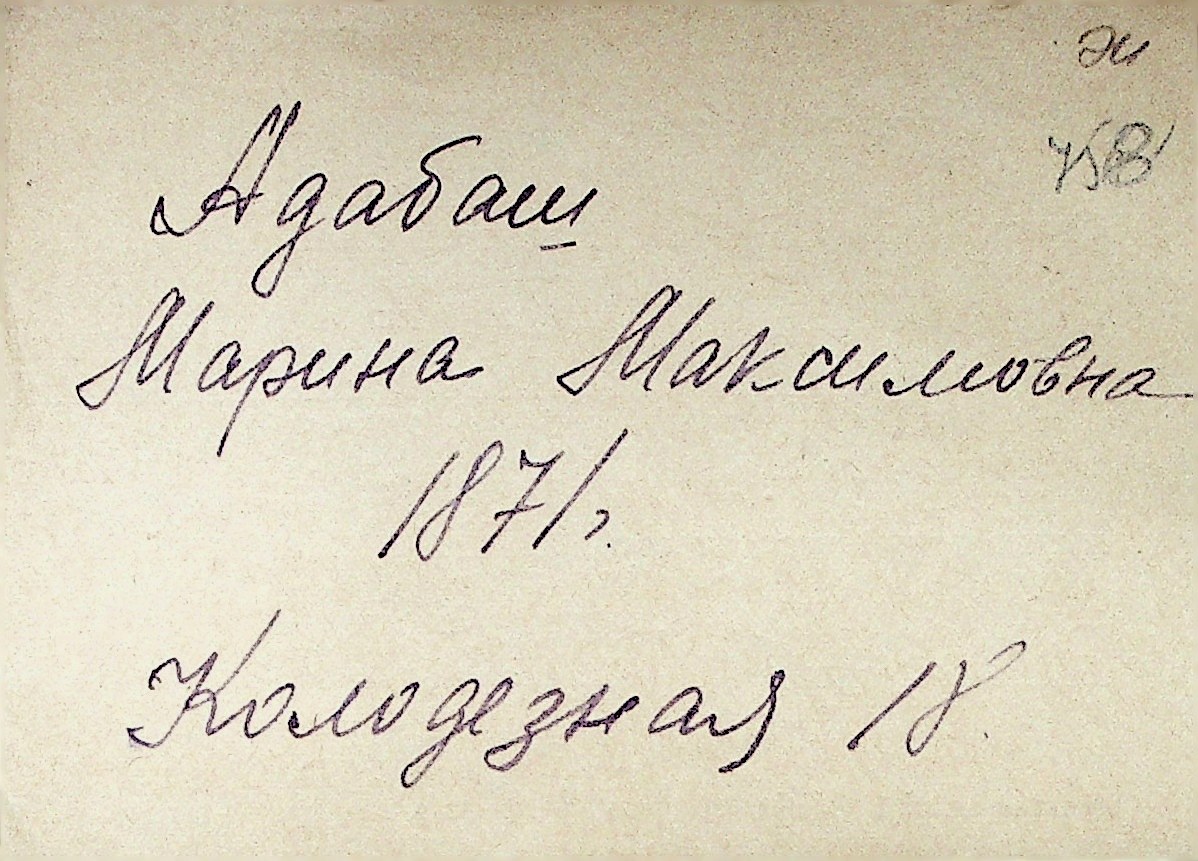 ж
758
Адабаш
Марина Максимовна
1871г.
Колодезная 18.